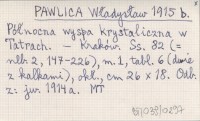 PAWLICA Władysław 1915 b.
Północna wyspa krystaliczna w
Tatrach. — Kraków. Ss. 32 (=
nlb 2, 147-226), m. 1, tabl. 6 (dwie
z kalkami), okł., cm 26 x 18. Odb.
z: jw. 1914 a. MT